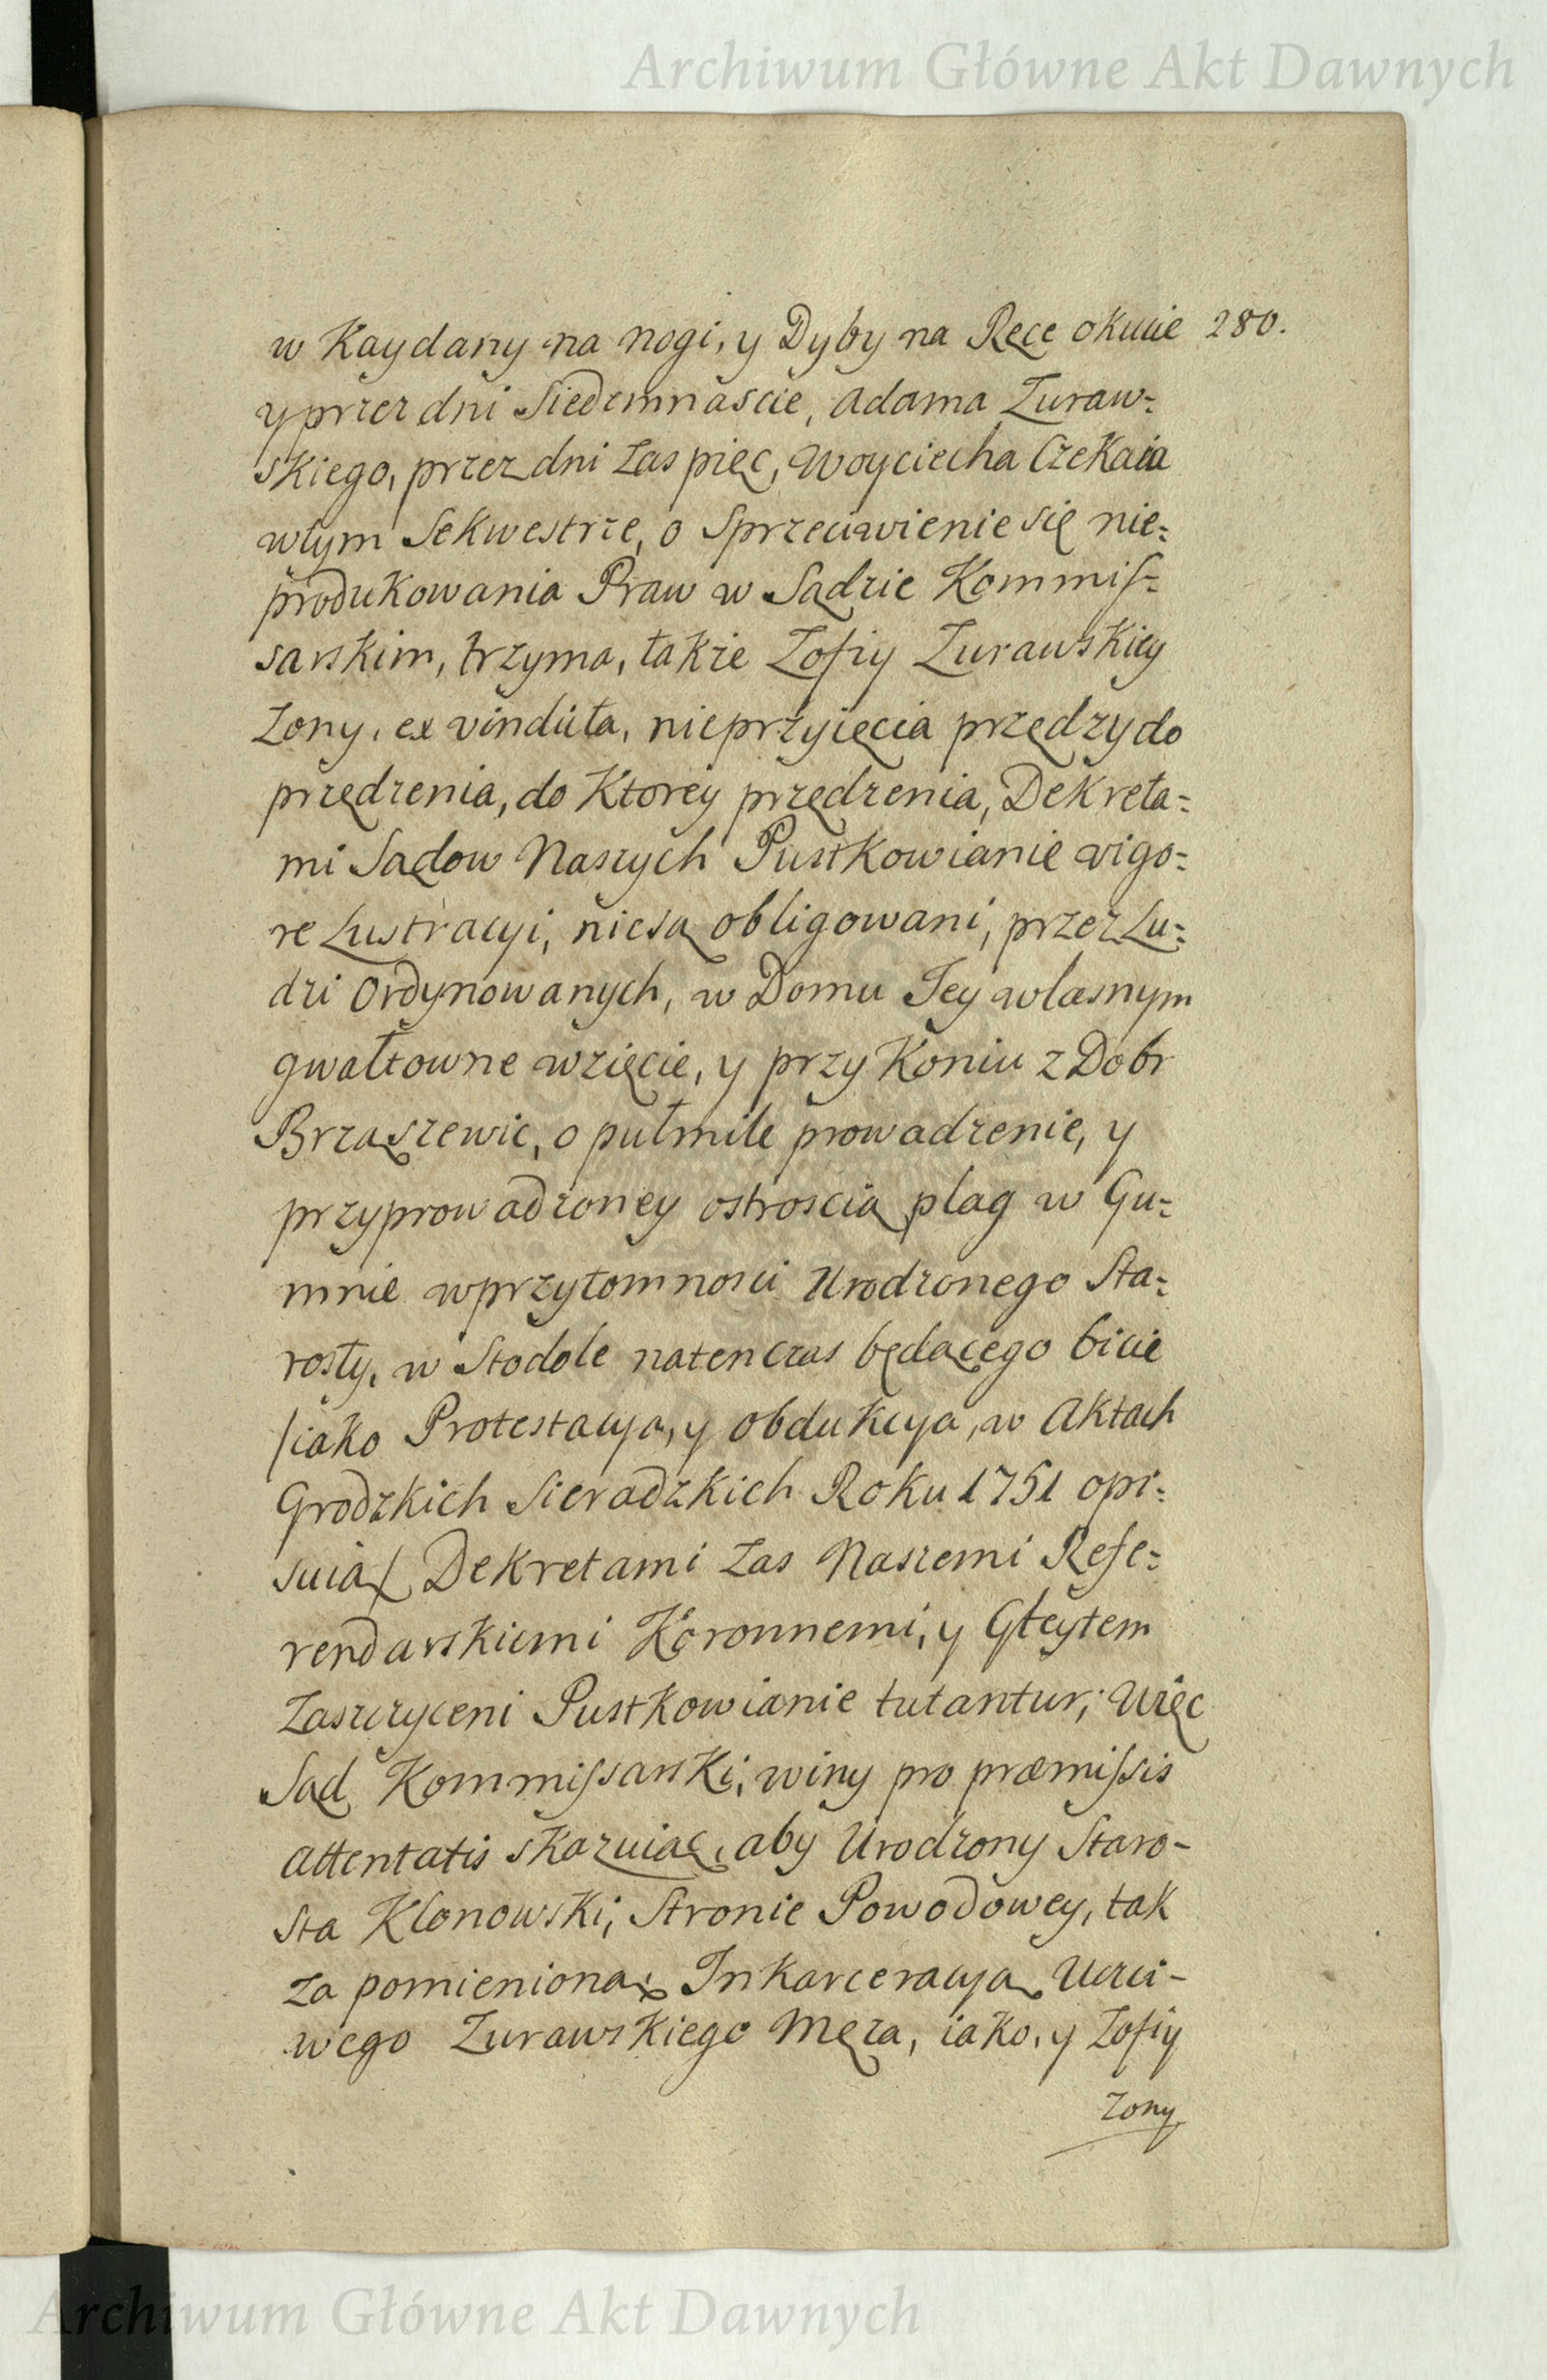 Archiwum Główne Akt Dawnych
w Kaydany na nogi, y Dyby na Ręce okucie 280.
y przez dni Siedmnascie, Adama Zuraw=
skiego, przez dni zas pięc, Woyciecha Czekaia
wtym Sekwestrze, o Sprzeciwienie się nie=
produkowania Praw w Sądzie Kommis=
sarskim, trzyma, takze Zofiy Zurawskiey
Zony, ex vindicta, nieprzyięcia przędzy do
przędzenia, do Ktorey przędzenia, Dekreta=
mi Sądow Naszych Pustkowianie vigo=
re Lustracyi, niesą obligowani, przez Lu=
dzi Ordynowanych, w Domu Jey własnym
gwałtowne wzięcie, y przy Koniu z Dobr
Brząszewic, o pułmile prowadzenie, y
przyprowadzoney ostroscią plag w Gu=
mnie wprzytomnosci Urodzonego Sta=
rosty, w Stodole natenczas będącego bicie
/iako Protestacya, y obdukcya, w Aktach
Grodzkich Sieradzkich Roku 1751 opi=
suią/ Dekretami zas Naszemi Refe=
rendarskiemi Koronnemi, y Gleytem
Zaszczyceni Pustkowianie tutantur; Więc
Sąd Kommissarski, winy pro præmissis
attentatis skazuiąc, aby Urodzony Staro-
sta Klonowski, Stronie Powodowey, tak
za pomienioną Inkarceracyą Uczci-
wego Zurawskiego Męza, iako, y Zofiy
Zony
Archiwum Główne Akt Dawnych